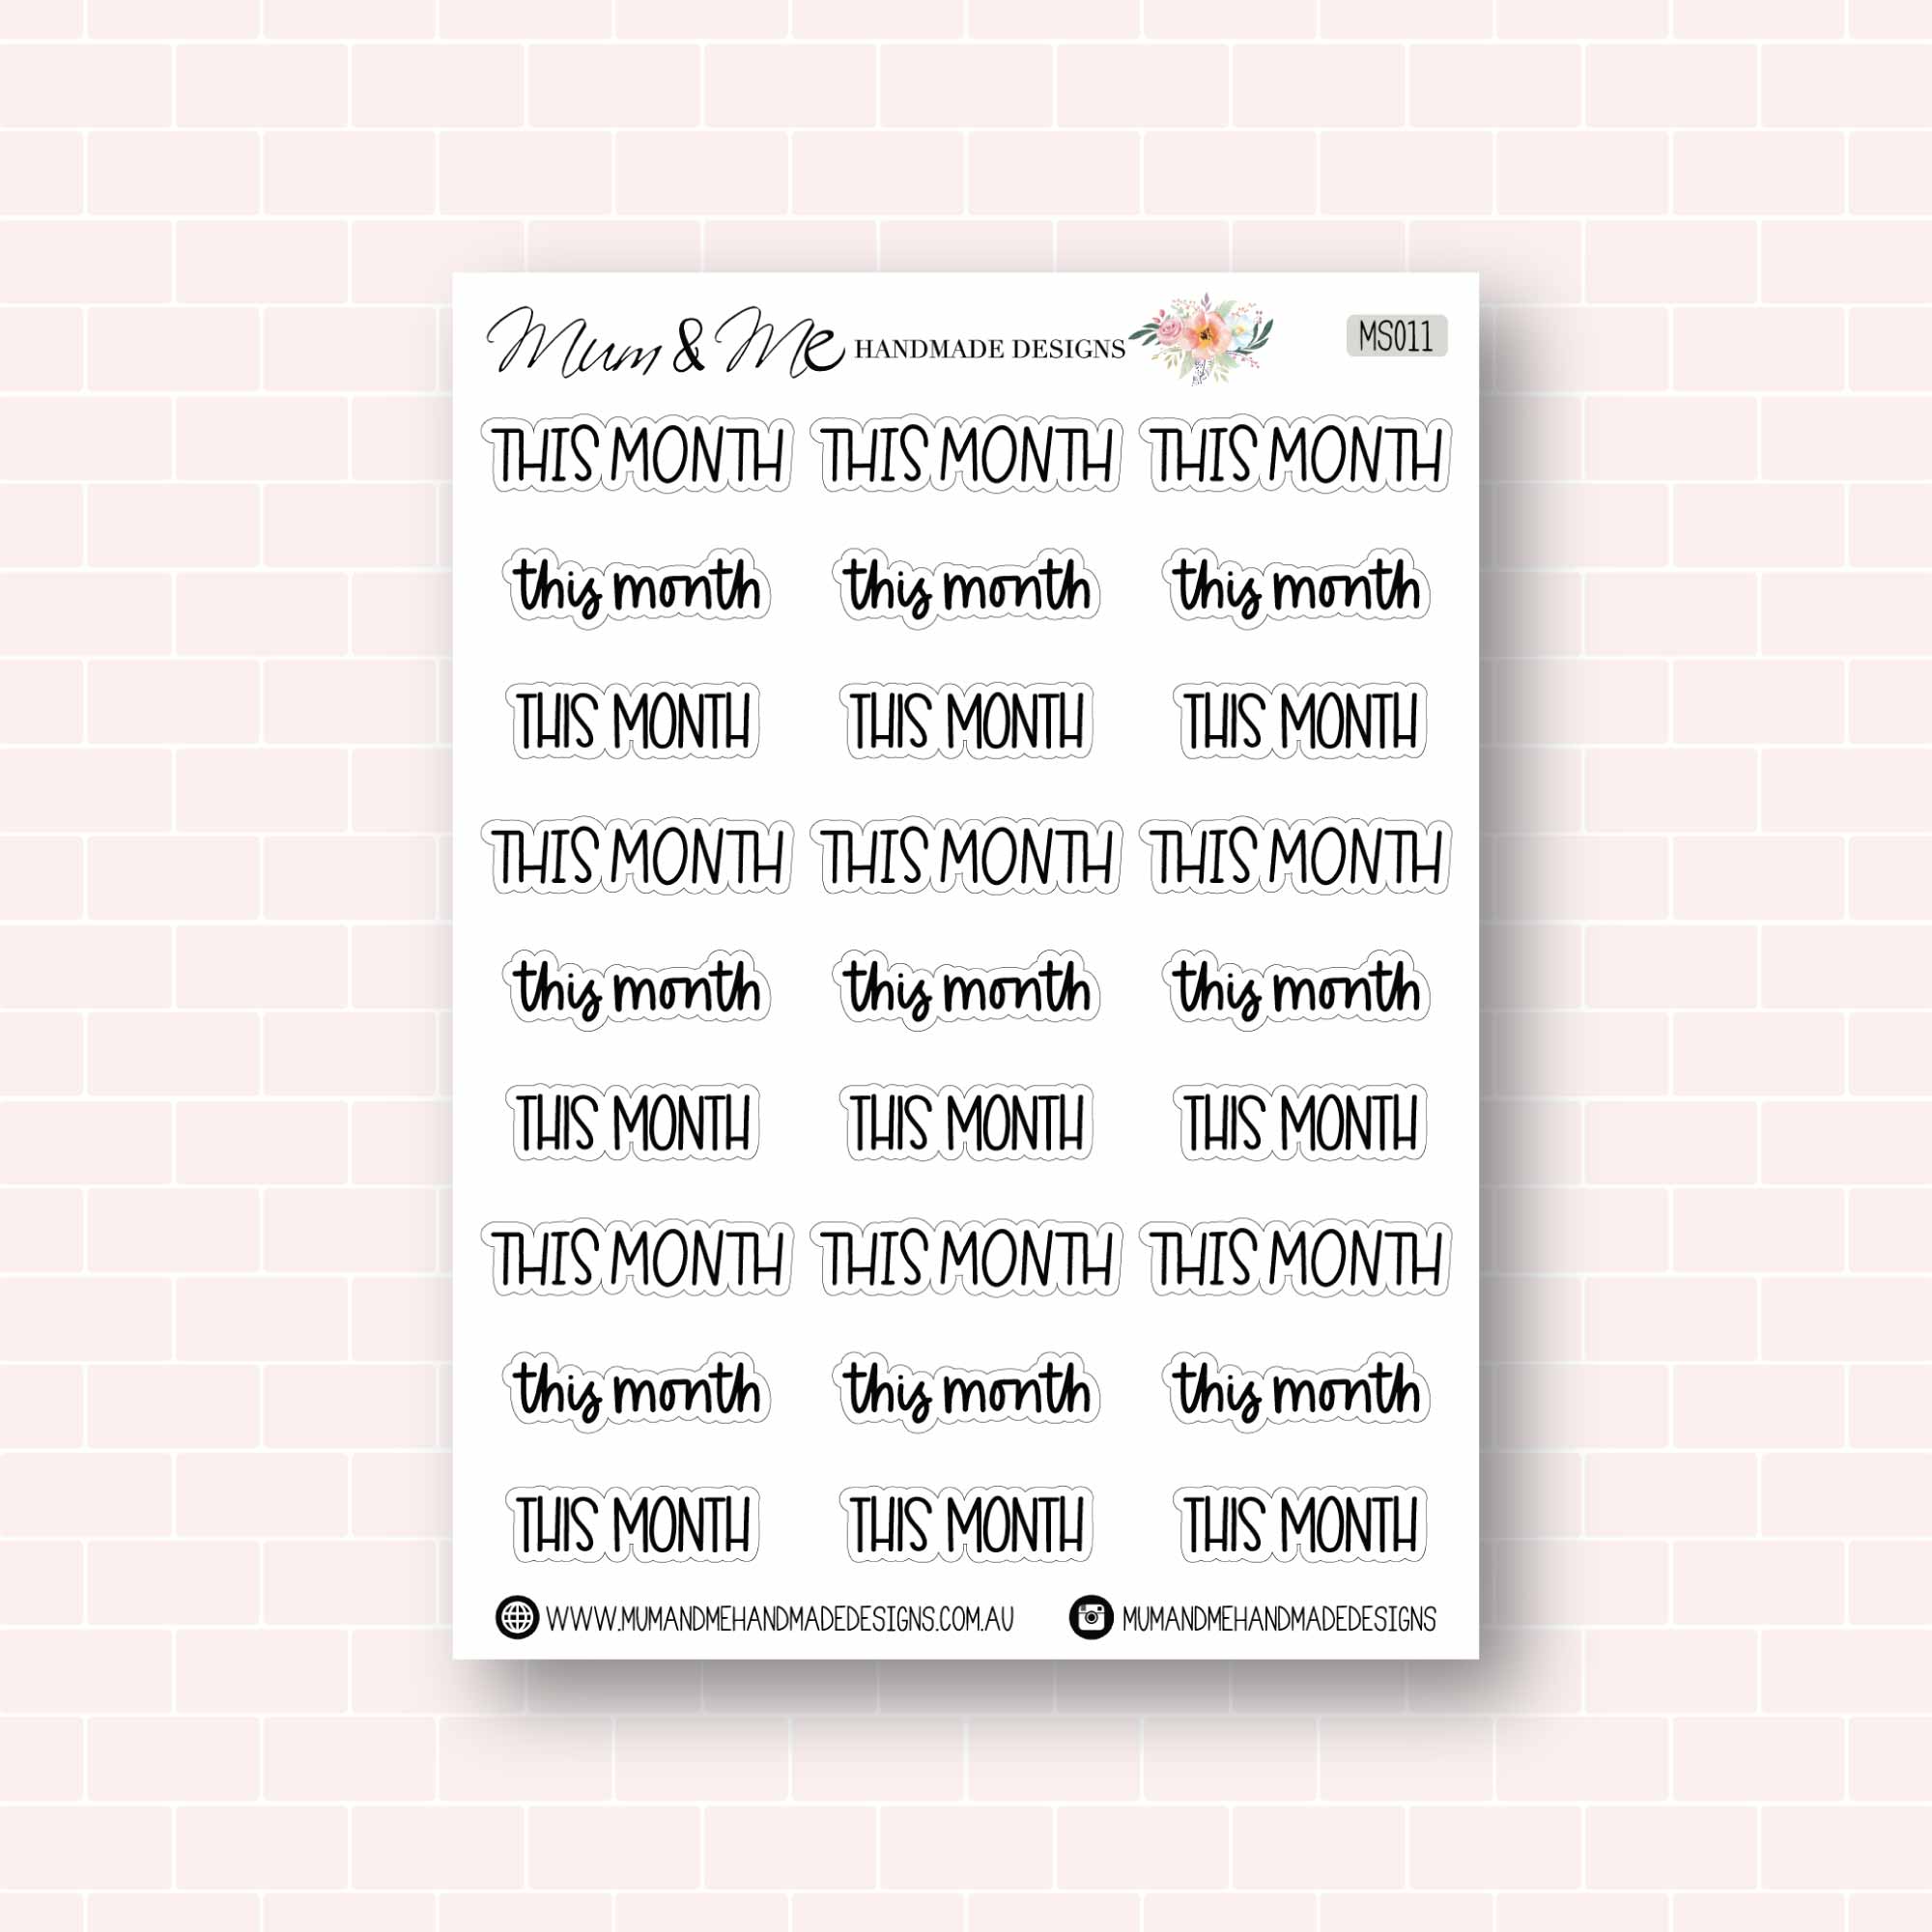 Mum & Me HANDMADE DESIGNS MS011
THIS MONTH THIS MONTH THIS MONTH
this month this month this month
THIS MONTH THIS MONTH THIS MONTH
THIS MONTH THIS MONTH THIS MONTH
this month this month this month
THIS MONTH THIS MONTH THIS MONTH
THIS MONTH THIS MONTH THIS MONTH
this month this month this month
THIS MONTH THIS MONTH THIS MONTH
WWW.MUMANDMEHANDMADEDESIGNS.COM.AU MUMANDMEHANDMADEDESIGNS